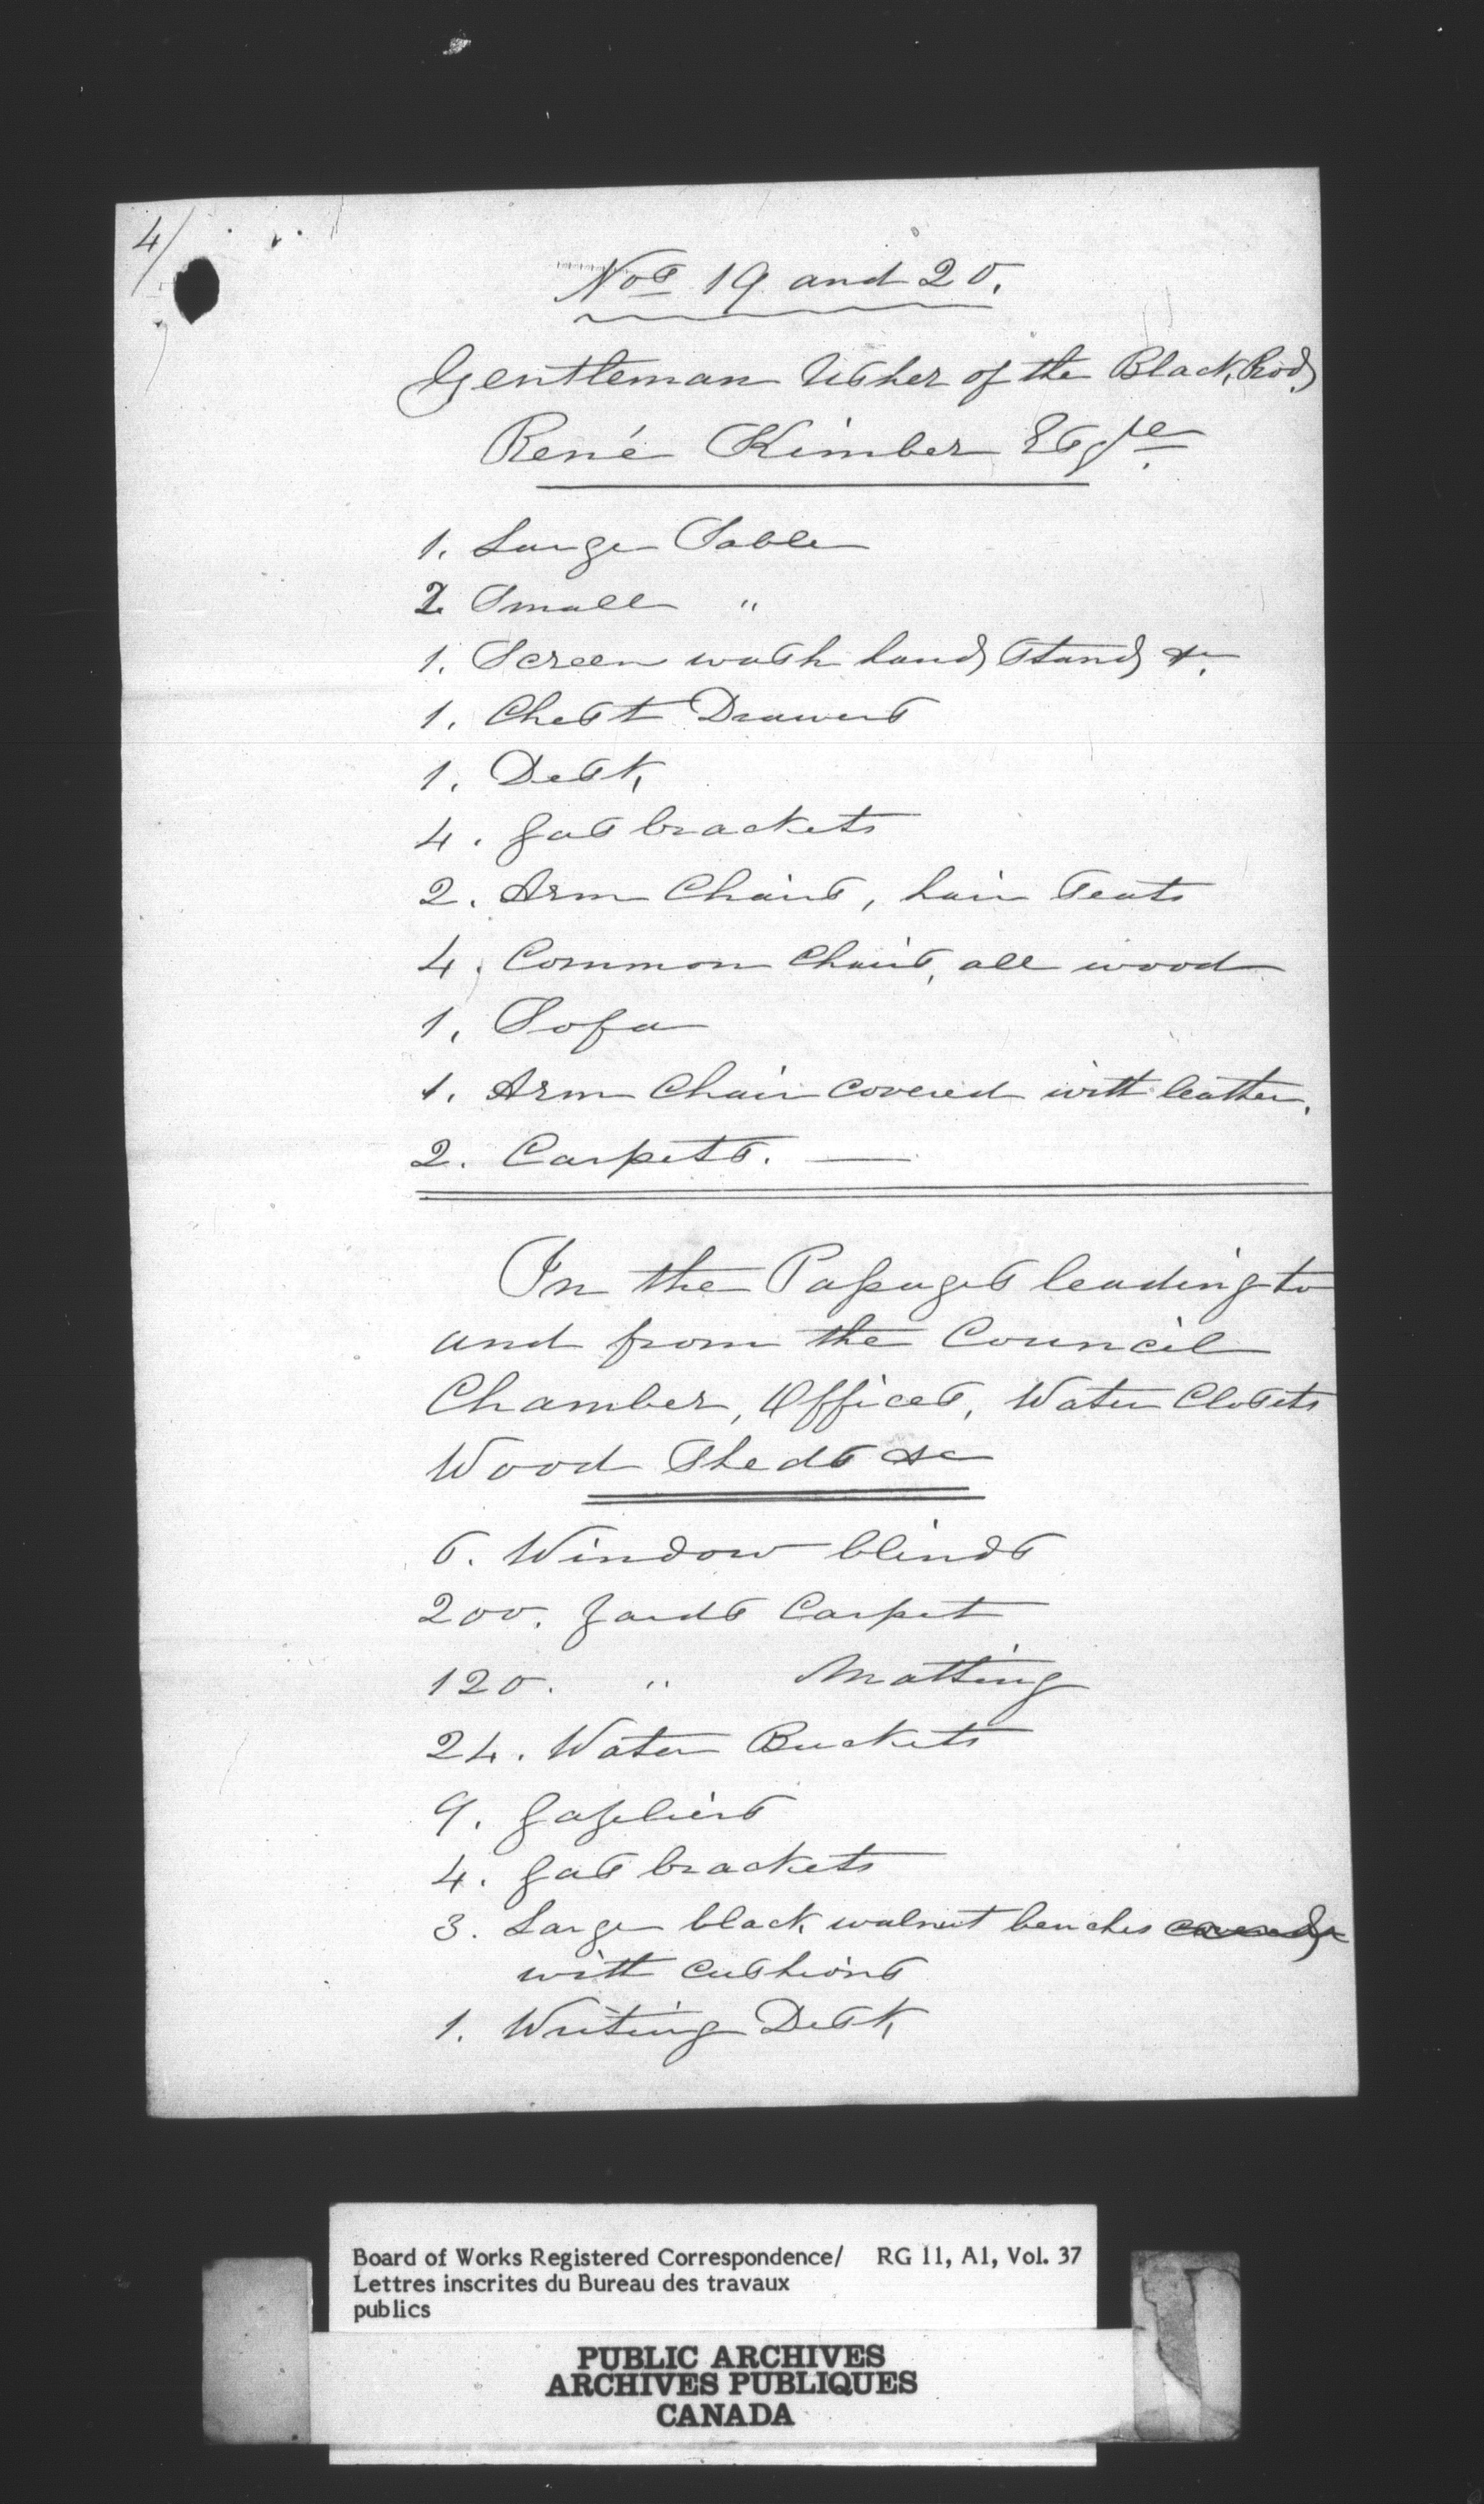 4/
Nos 19 and 20.
Gentleman Usher of the Black Rod
René Kimber Esqre.
1. Large Table
2 Small "
1. Screen wash hand Stand &c.
1. Chest Drawers
1. Desk
4. gas brackets
2. Arm Chairs, hair seats
4. Common Chairs, all wood
1. Sofa
1. Arm Chair covered with leather.
2. Carpets. —
In the Passages leading to
and from the Council
Chamber, Offices, Water Closets
Wood Sheds &c
6. Window blinds
200. yards Carpet
120. " Matting
24. Water Buckets
9. gasseliers
4. gas brackets
3. Large black walnut benches covered
with cushions
1. Writing Desk
Board of Works Registered Correspondence/ RG 11, A1, Vol. 37
Lettres inscrites du Bureau des travaux
publics
PUBLIC ARCHIVES
ARCHIVES PUBLIQUES
CANADA